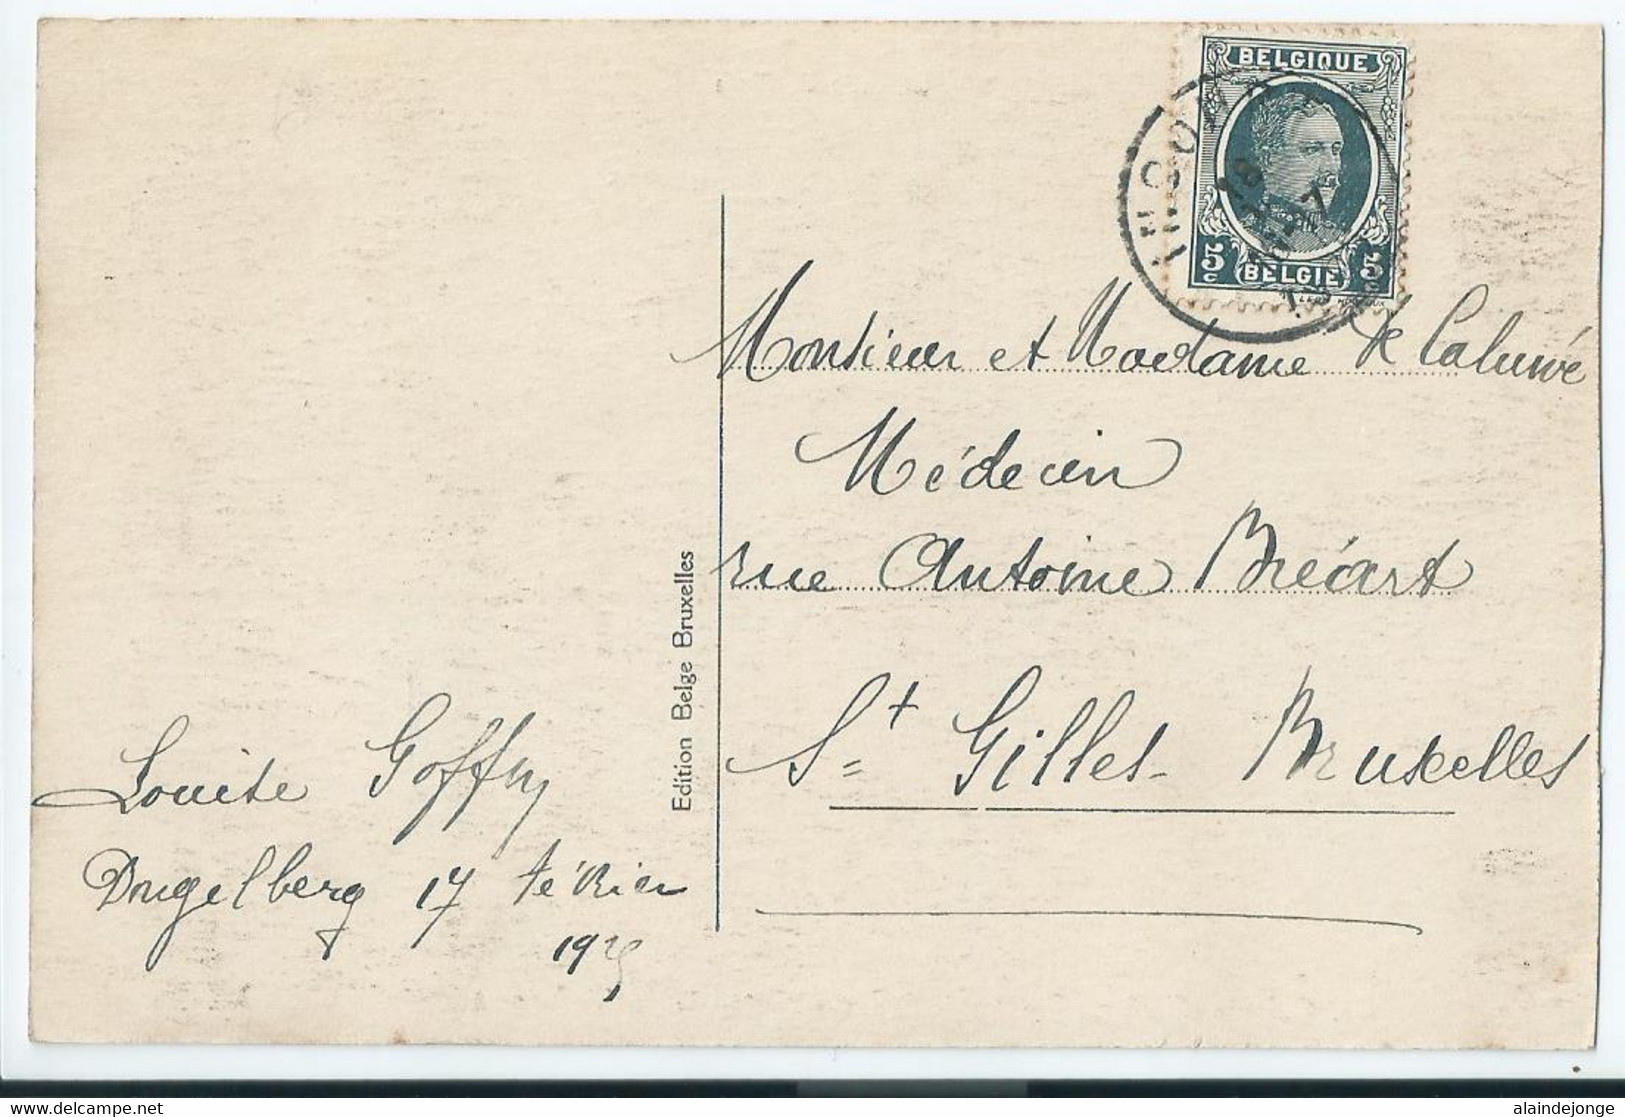 BELGIQUE
5c BELGIË 5c
Monsieur et Madame De Caluwé
Médecin
rue Antoine Bréart
St Gilles - Bruxelles
Edition Belge Bruxelles
Louise Goffin
Dongelberg 17 février
1925
delcampe.net
alaindejonge